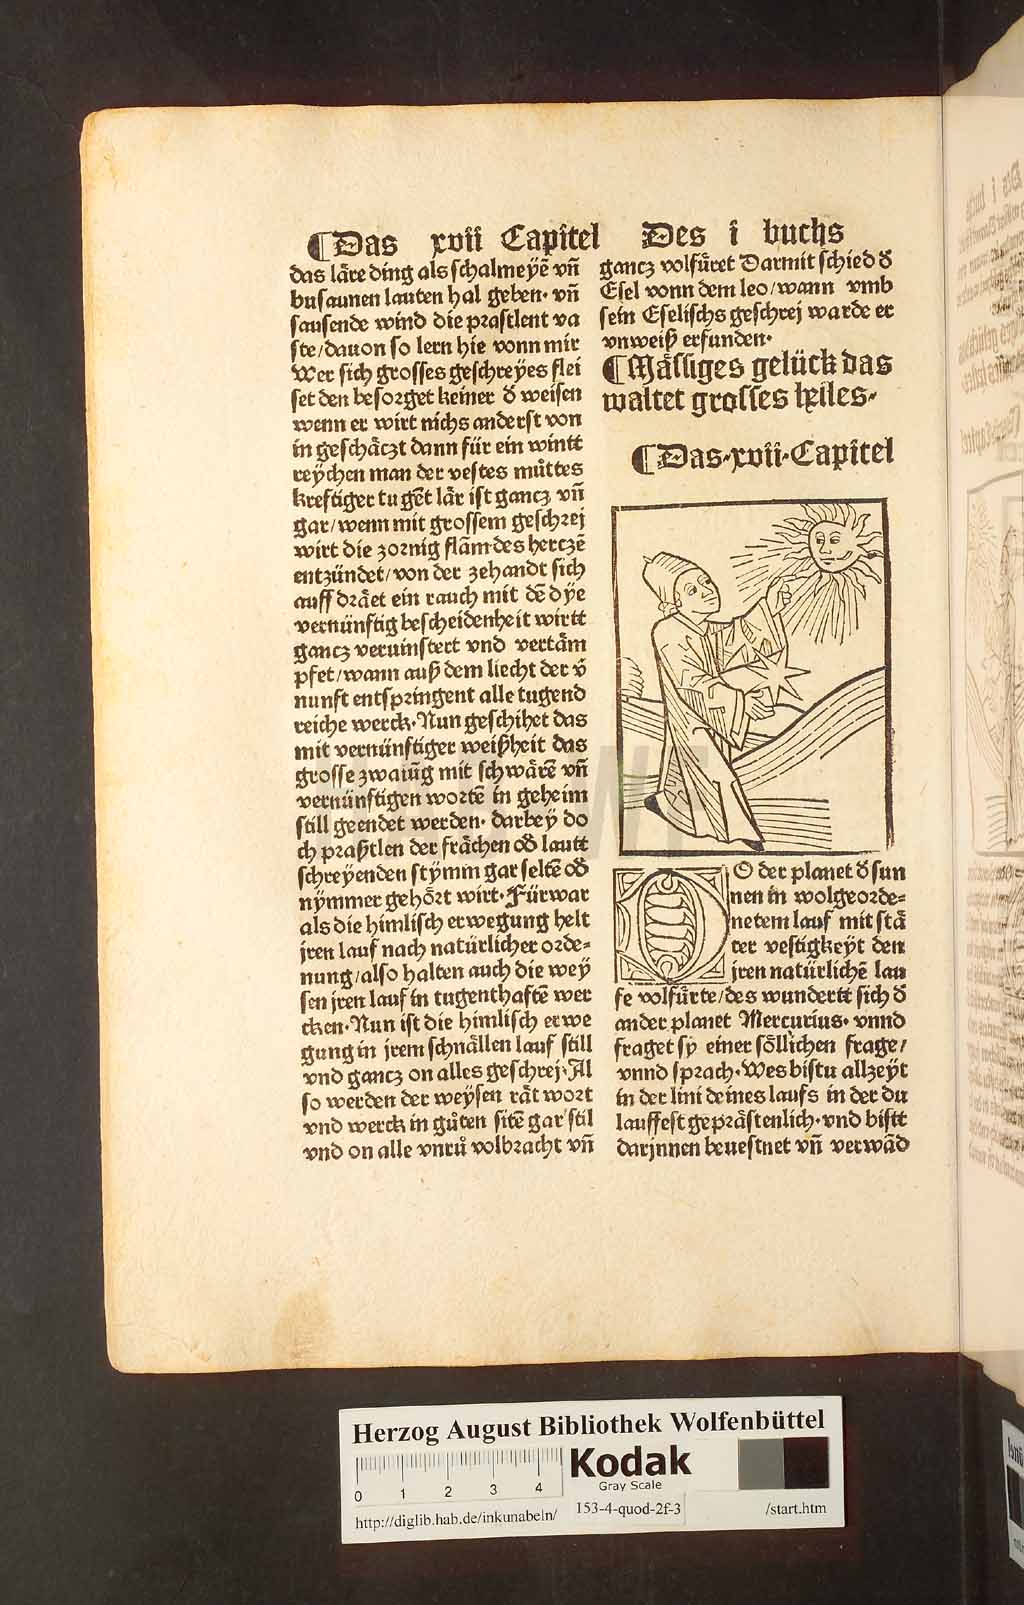 ¶Das xvii Capitel Des i buchs
das läre ding als schalmeyē vñ
busaunen lauten hal geben· vñ
sausende wind die prastlent va
ste/dauon so lern hie vonn mir
Wer sich grosses geschreyes flei
set den besorget keiner d̄ weisen
wenn er wirt nichs anderst von
in geschäczt dann für ein wintt
reychen man der vestes mu̇ttes
kreftiger tugēt lär ist gancz vñ
gar/wenn mit grossem geschrej
wirt die zornig flām des herczē
entzündet/von der zehandt sich
auff dräet ein rauch mit dē dye
vernünftig bescheidenheit wirtt
gancz veruinstert vnd vertäm
pfet/wann auß dem liecht der v̄
nunft entspringent alle tugend
reiche werck·Nun geschihet das
mit vernünftiger weißheit das
grosse zwaiūg mit schwärē vñ
vernünftigen wortē in geheim
still geendet werden· darbey do
ch praßtlen der frächen od̄ lautt
schreyenden stymm gar seltē od̄
nymmer gehört wirt·Fürwar
als die himlisch erwegung helt
jren lauf nach natürlicher orde=
nung/also halten auch die wey
sen jren lauf in tugenthaftē wer
cken·Nun ist die himlisch erwe
gung in jrem schnällen lauf still
vnd gancz on alles geschrej·Al
so werden der weysen rät wort
vnd werck in gůten sitē gar stil
vnd on alle vnrů volbracht vñ
gancz volfüret Darmit schied d̄
Esel vonn dem leo/wann vmb
sein Eselischs geschrej warde er
vnweiß erfunden·
¶Mässiges gelück das
waltet grosses heiles·
¶Das·xvii·Capitel
DO der planet d̄ sun
nen in wolgeorde=
netem lauf mit stä
ter vestigkeyt den
jren natürlichē lau
fe volfürte/des wundertt sich d̄
ander planet Mercurius· vnnd
fraget sy einer söllichen frage/
vnnd sprach·Wes bistu allzeyt
in der lini deines laufs in der du
lauffest geprästenlich·vnd bistt
darjnnen beuestnet vñ verwād
Herzog August Bibliothek Wolfenbüttel
0 1 2 3 4
Kodak
Gray Scale
http://diglib.hab.de/inkunabeln/ 153-4-quod-2f-3 /start.htm